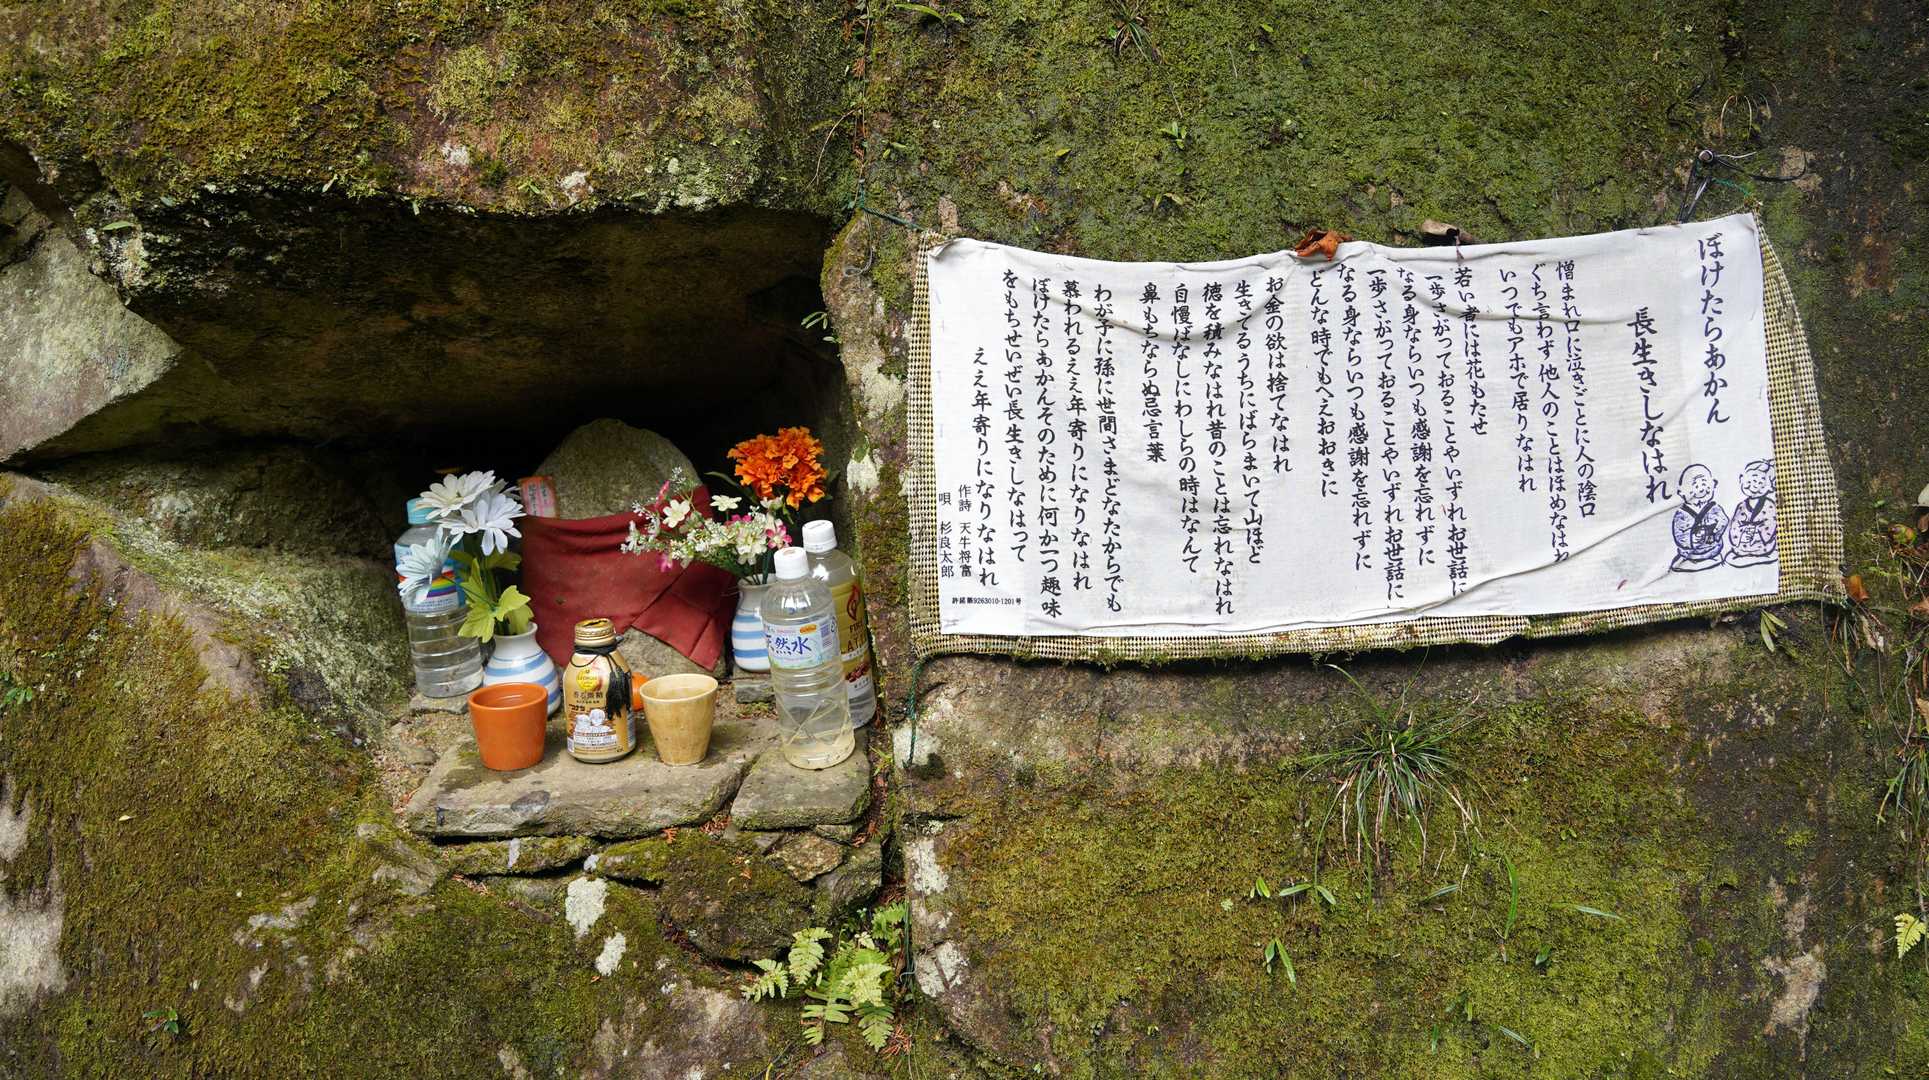 ぼけたらあかん
長生きしなはれ
憎まれ口に泣きごとに人の陰口
ぐち言わず他人のことはほめなはれ
いつでもアホで居りなはれ
若い者には花もたせ
一歩さがっておることやいずれお世話に
なる身ならいつも感謝を忘れずに
一歩さがっておることやいずれお世話に
なる身ならいつも感謝を忘れずに
どんな時でもへえおおきに
お金の欲は捨てなはれ
生きてるうちにばらまいて山ほど
徳を積みなはれ昔のことは忘れなはれ
自慢ばなしにわしらの時はなんて
鼻もちならぬ忌言葉
わが子に孫に世間さまどなたからでも
慕われるええ年寄りになりなはれ
ぼけたらあかんそのために何か一つ趣味
をもちせいぜい長生きしなはって
ええ年寄りになりなはれ
作詩 天牛将富
唄 杉良太郎
許諾第9263010-1201号
天然水